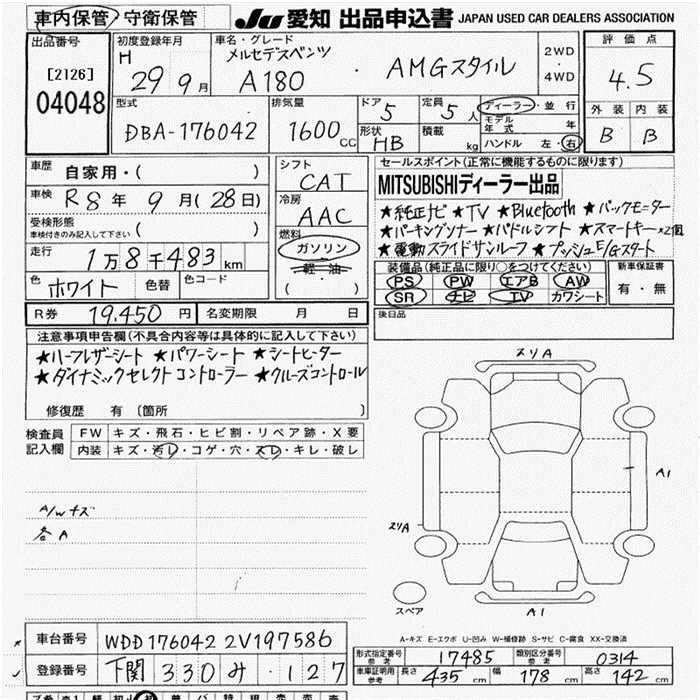 車内保管・守衛保管
JU 愛知 出品申込書 JAPAN USED CAR DEALERS ASSOCIATION
出品番号
[2126]
04048
初度登録年月
H 29 9月
車名・グレード
メルセデスベンツ
A180 ・ AMGスタイル
2WD
・
4WD
評価点
4.5
外装 内装
B B
型式
DBA-176042
排気量
1600 CC
ドア 5
形状 HB
定員 5 人
積載 kg
ディーラー・並行
モデル年式 年
ハンドル 左・右
車歴 自家用・( )
車検 R8年 9月(28日)
受検形態
車検付きのみ記入して下さい ( )
走行 1万8千483km
色 ホワイト 色替 色コード
シフト
CAT
冷房
AAC
燃料
ガソリン
軽・油
( )
セールスポイント(正常に機能するものに限ります)
MITSUBISHIディーラー出品
★純正ナビ ★TV ★Bluetooth ★バックモニター
★パーキングソナー ★パドルシフト ★スマートキー×2個
★電動スライドサンルーフ ★プッシュE/Gスタート
装備品(純正品に限り○をつけてください)
PS PW エアB AW
SR ナビ TV カワシート
新車保証書
有・無
R券 19,450 円 名変期限 月 日
後日品
注意事項申告欄(不具合内容等は具体的に記入して下さい)
★ハーフレザーシート ★パワーシート ★シートヒーター
★ダイナミックセレクトコントローラー ★クルーズコントロール
修復歴 有 〔箇所 〕
検査員記入欄
FW キズ・飛石・ヒビ割・リペア跡・X要
内装 キズ・汚レ・コゲ・穴・スレ・キレ・破レ
A/Wキズ
各A
スリA
A1
スリA
スペア
A1
A-キズ E-エクボ U-凹み W-補修跡 S-サビ C-腐食 XX-交換済
車台番号 WDD1760422V197586
登録番号 下関 330 み・127
形式指定番号 参考 17485 類別区分番号 参考 0314
車庫証明 参考 長さ 435 cm 幅 178 cm 高さ 142 cm